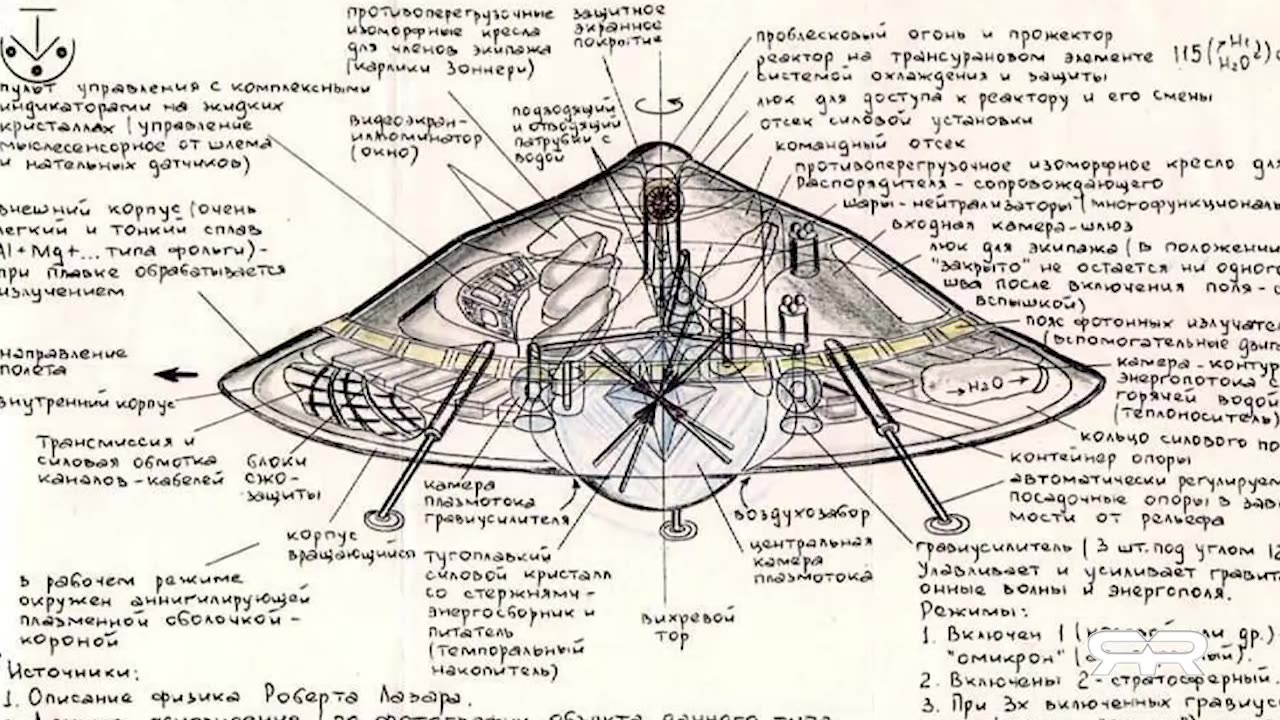 противоперегрузочные
изоморфные кресла
для членов экипажа
(карлики Зоннери)
защитное
экранное
покрытие
проблесковый огонь и прожектор
реактор на трансурановом элементе 115
системой охлаждения и защиты
люк для доступа к реактору и его смены
отсек силовой установки
командный отсек
противоперегрузочное изоморфное кресло для
Распорядителя - сопровождающего
шары-нейтрализаторы (многофункциональ
входная камера-шлюз
люк для экипажа (в положении
"закрыто" не остается ни одного
шва после включения поля - с
вспышкой)
пояс фотонных излучате
(вспомогательные двиг
камера-контур
энергопотока с
горячей водой
(теплоноситель)
кольцо силового по
контейнер опоры
автоматически регулируем
посадочные опоры в зав
мости от рельефа
пульт управления с комплексными
индикаторами на жидких
кристаллах (управление
мыслесенсорное от шлема
и нательных датчиков)
видеоэкран-
иллюминатор
(окно)
подводящий
и отводящий
патрубки с
водой
внешний корпус (очень
легкий и тонкий сплав
Al+Mg+... типа фольги) -
при плавке обрабатывается
излучением
направление
полета
внутренний корпус
→H₂O→
Трансмиссия и
силовая обмотка
каналов-кабелей
блоки
СЖО-
защиты
камера
плазмотока
гравиусилителя
корпус
вращающийся
воздухозабор
центральная
камера
плазмотока
гравиусилитель (3 шт. под углом 12
Улавливает и усиливает гравит
онные волны и энергополя.
Режимы:
1. Включен 1
"омикрон"
2. Включены 2 - стратосферный.
3. При 3х включенных гравиус
тугоплавкий
силовой кристалл
со стержнями-
энергосборник и
питатель
(темпоральный
накопитель)
вихревой
тор
в рабочем режиме
окружен аннигилирующей
плазменной оболочкой -
короной
Источники:
1. Описание физика Роберта Лазара.